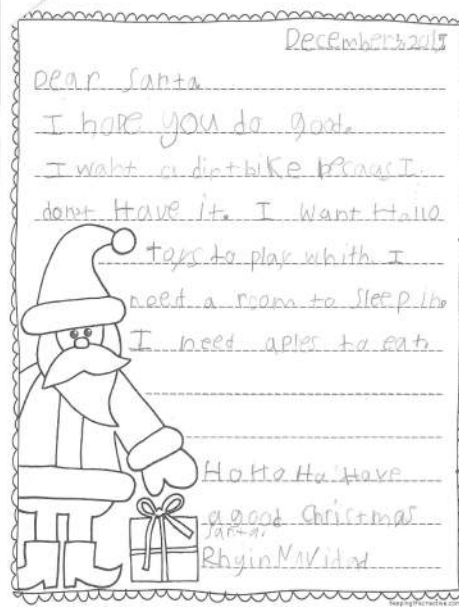 December 3, 2015
Dear Santa
I hope you do good.
I want a dirtbike becaus I
donet Have it. I want Hallo
toys to play whith I
need a room to sleep in.
I need aples to eat.
Ho Ho Ho Have
a good Christmas
santa.
Rhyin NAVidad